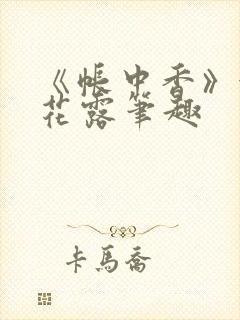 《帐中香》
花露笔趣
卡马乔